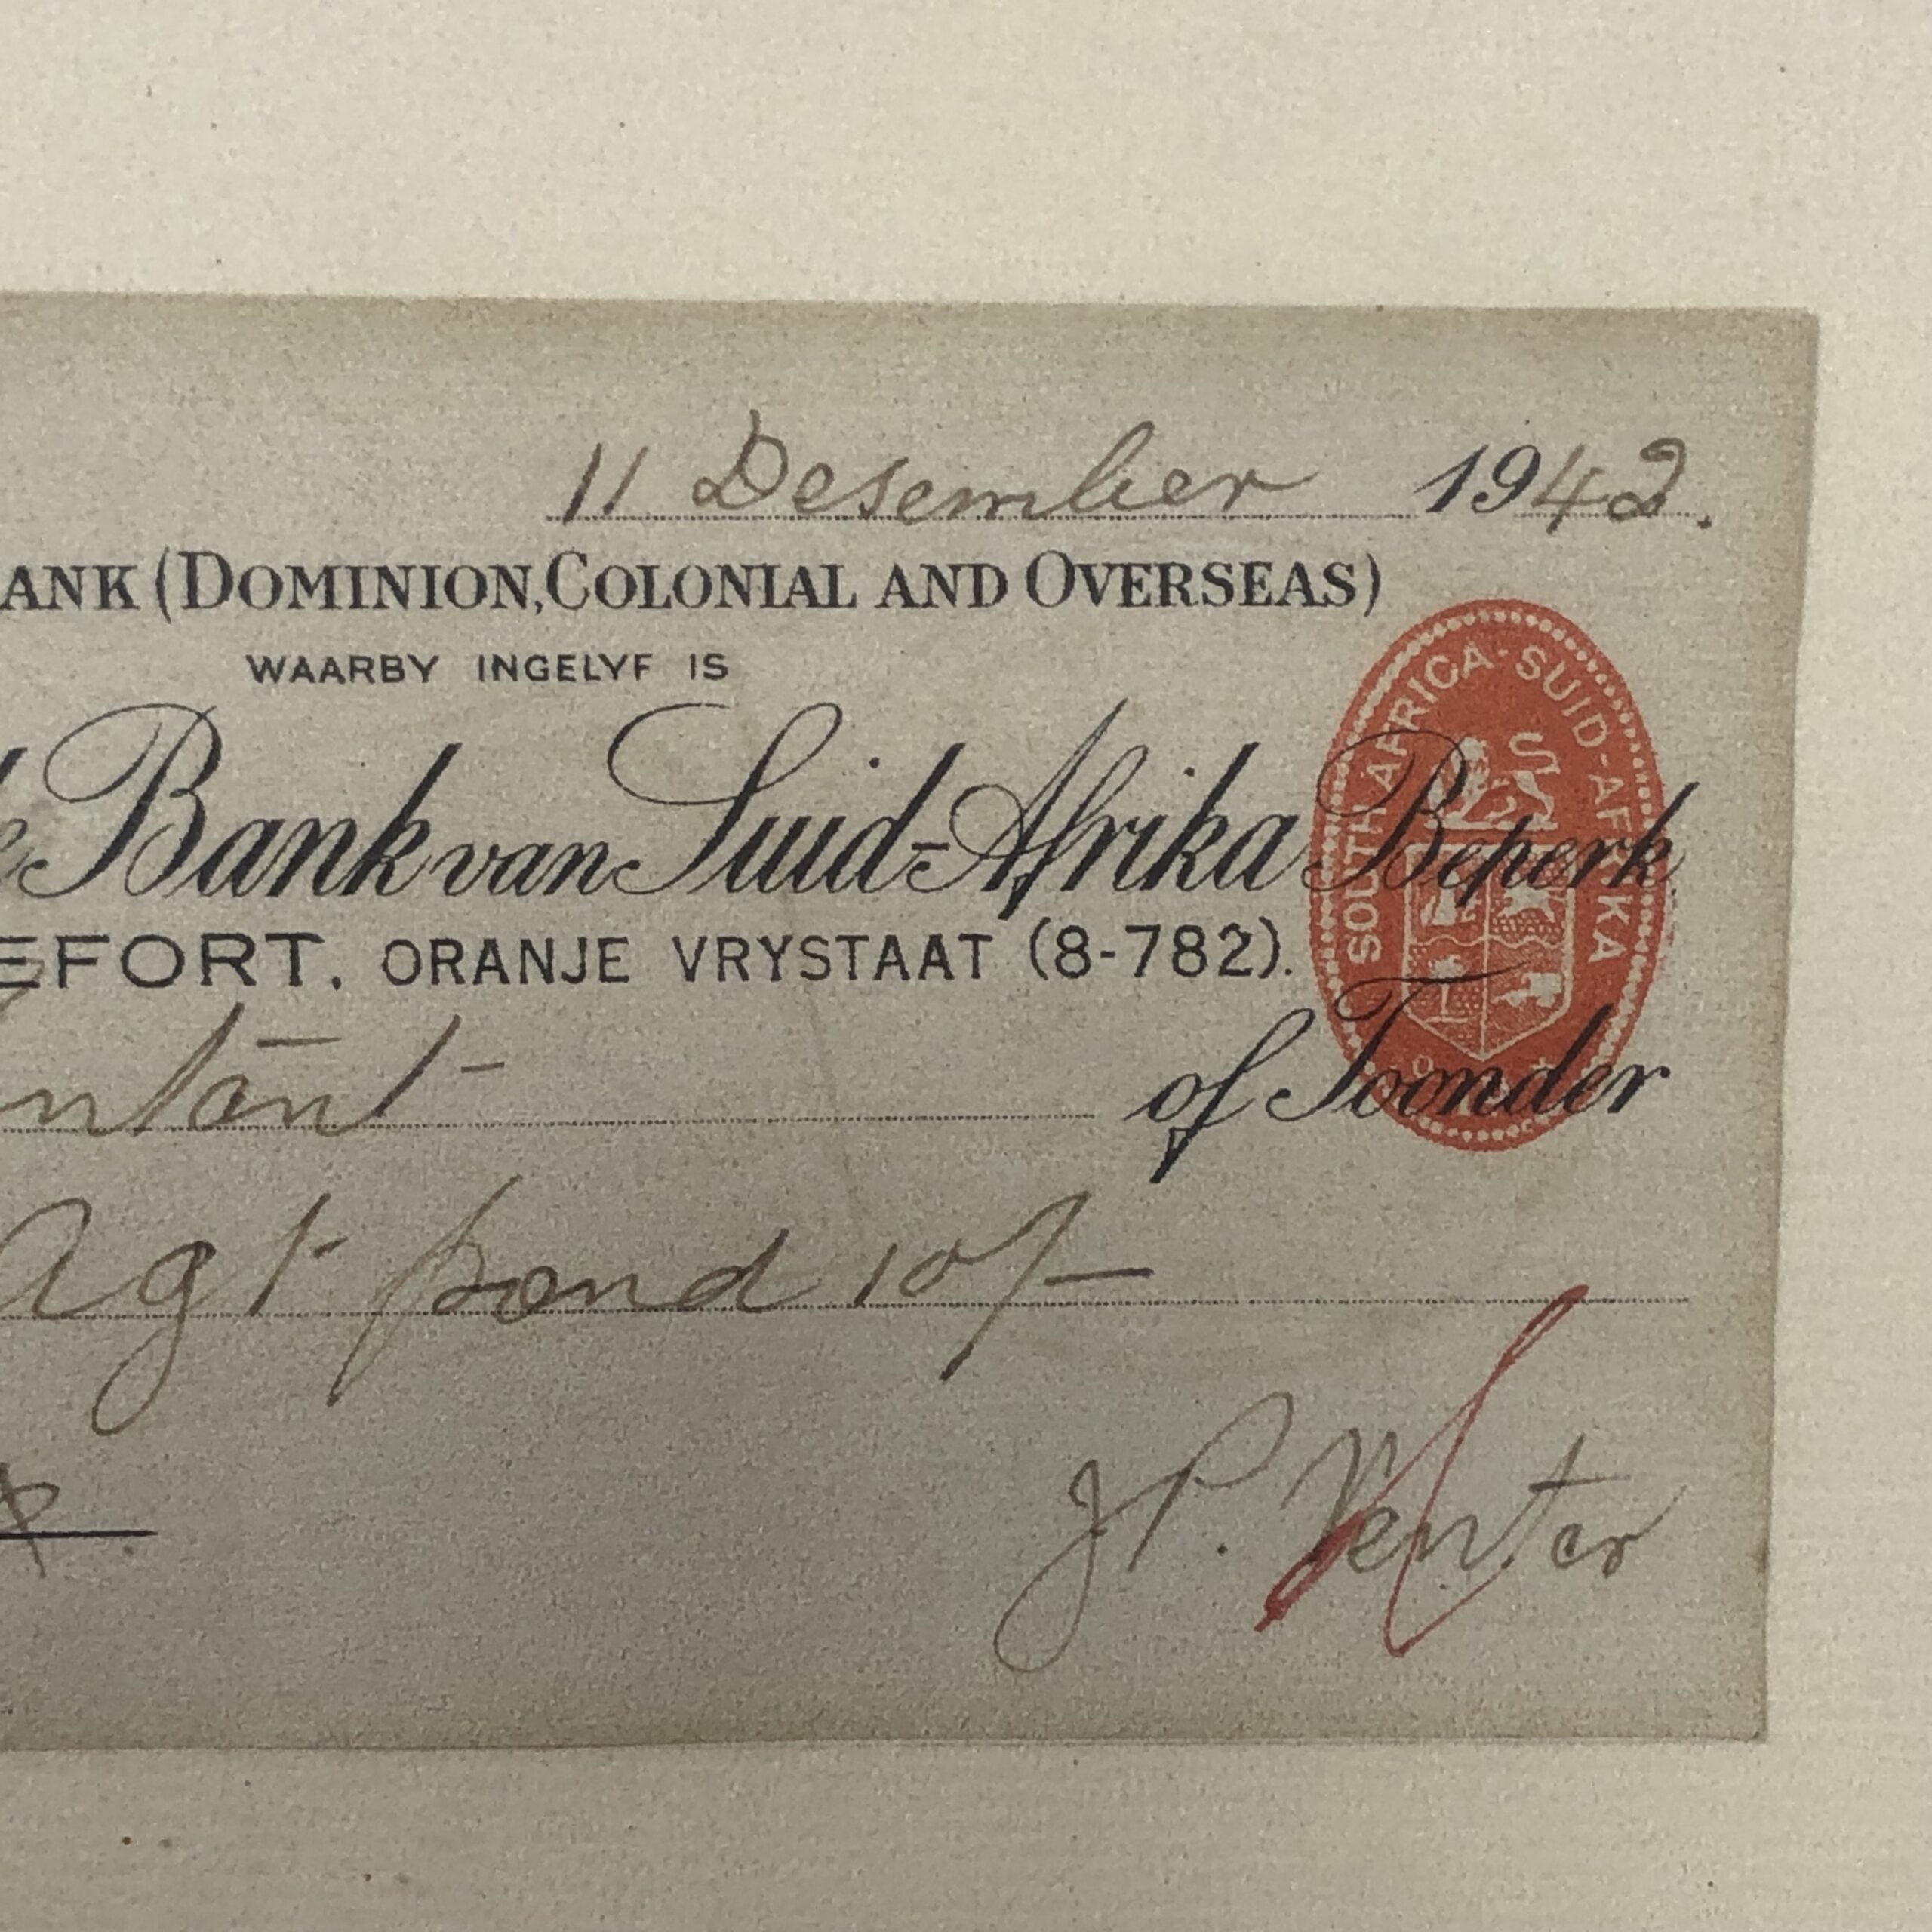 11 Desember 1942.
ANK (DOMINION, COLONIAL AND OVERSEAS)
WAARBY INGELYF IS
Bank van Suid-Afrika Beperk.
EFORT. ORANJE VRYSTAAT (8-782).
SOUTH AFRICA - SUID-AFRIKA
ntant - of Toonder
Agt pond 10/-
J P. Venter